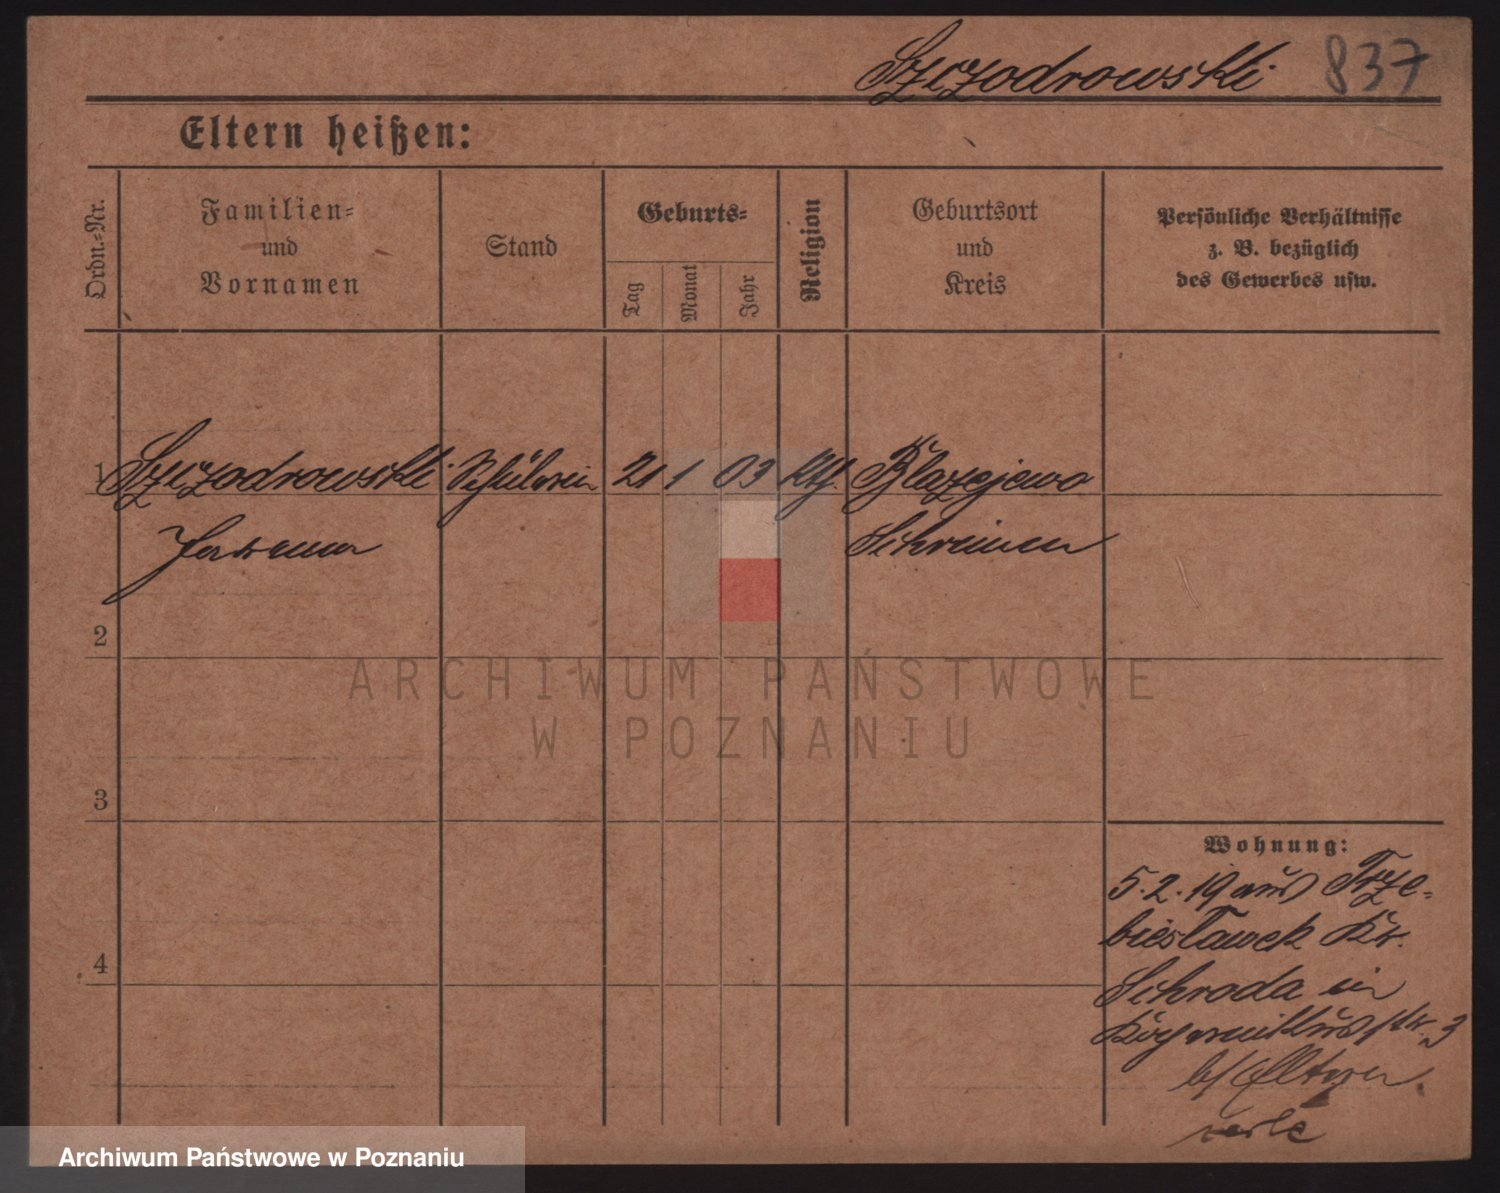 Szczodrowski 837
Eltern heißen:
Ordn.-Nr.
Familien-
und
Vornamen
Stand
Geburts-
Tag
Monat
Jahr
Religion
Geburtsort
und
Kreis
Persönliche Verhältnisse
z. B. bezüglich
des Gewerbes usw.
1 Szczodrowski Schülerin 21 1 03 kth. Blazejewo
Schrimm
2
3
4
Wohnung:
5.2.19 aus Trze-
bieslawek Kr.
Schroda in
3
b/ Eltern
ARCHIWUM PAŃSTWOWE
W POZNANIU
Archiwum Państwowe w Poznaniu